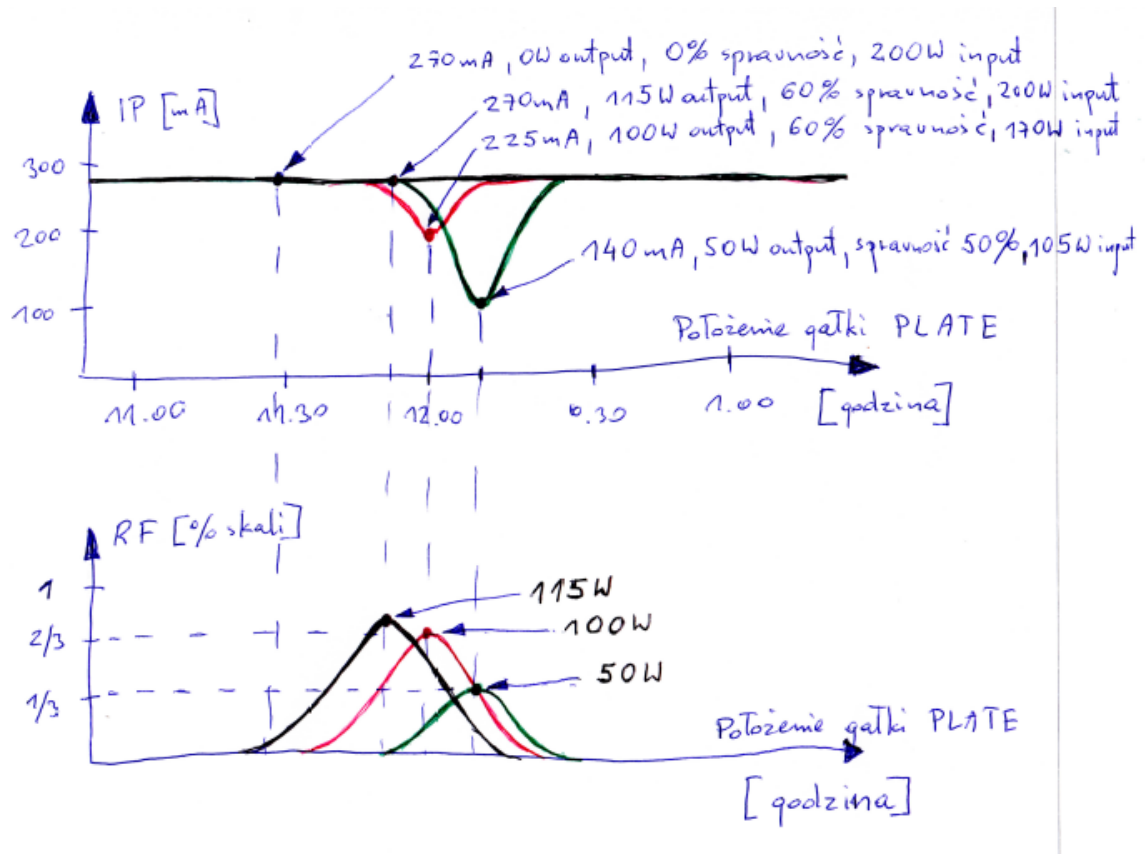 270mA, 0W output, 0% sprawność, 200W input
IP [mA]
270mA, 115W output, 60% sprawność, 200W input
225mA, 100W output, 60% sprawność, 170W input
300
200
140mA, 50W output, sprawność 50%, 105W input
100
Położenie gałki PLATE
11.00 11.30 12.00 0.30 1.00 [godzina]
RF [% skali]
1
115W
2/3
100W
50W
1/3
Położenie gałki PLATE
[godzina]